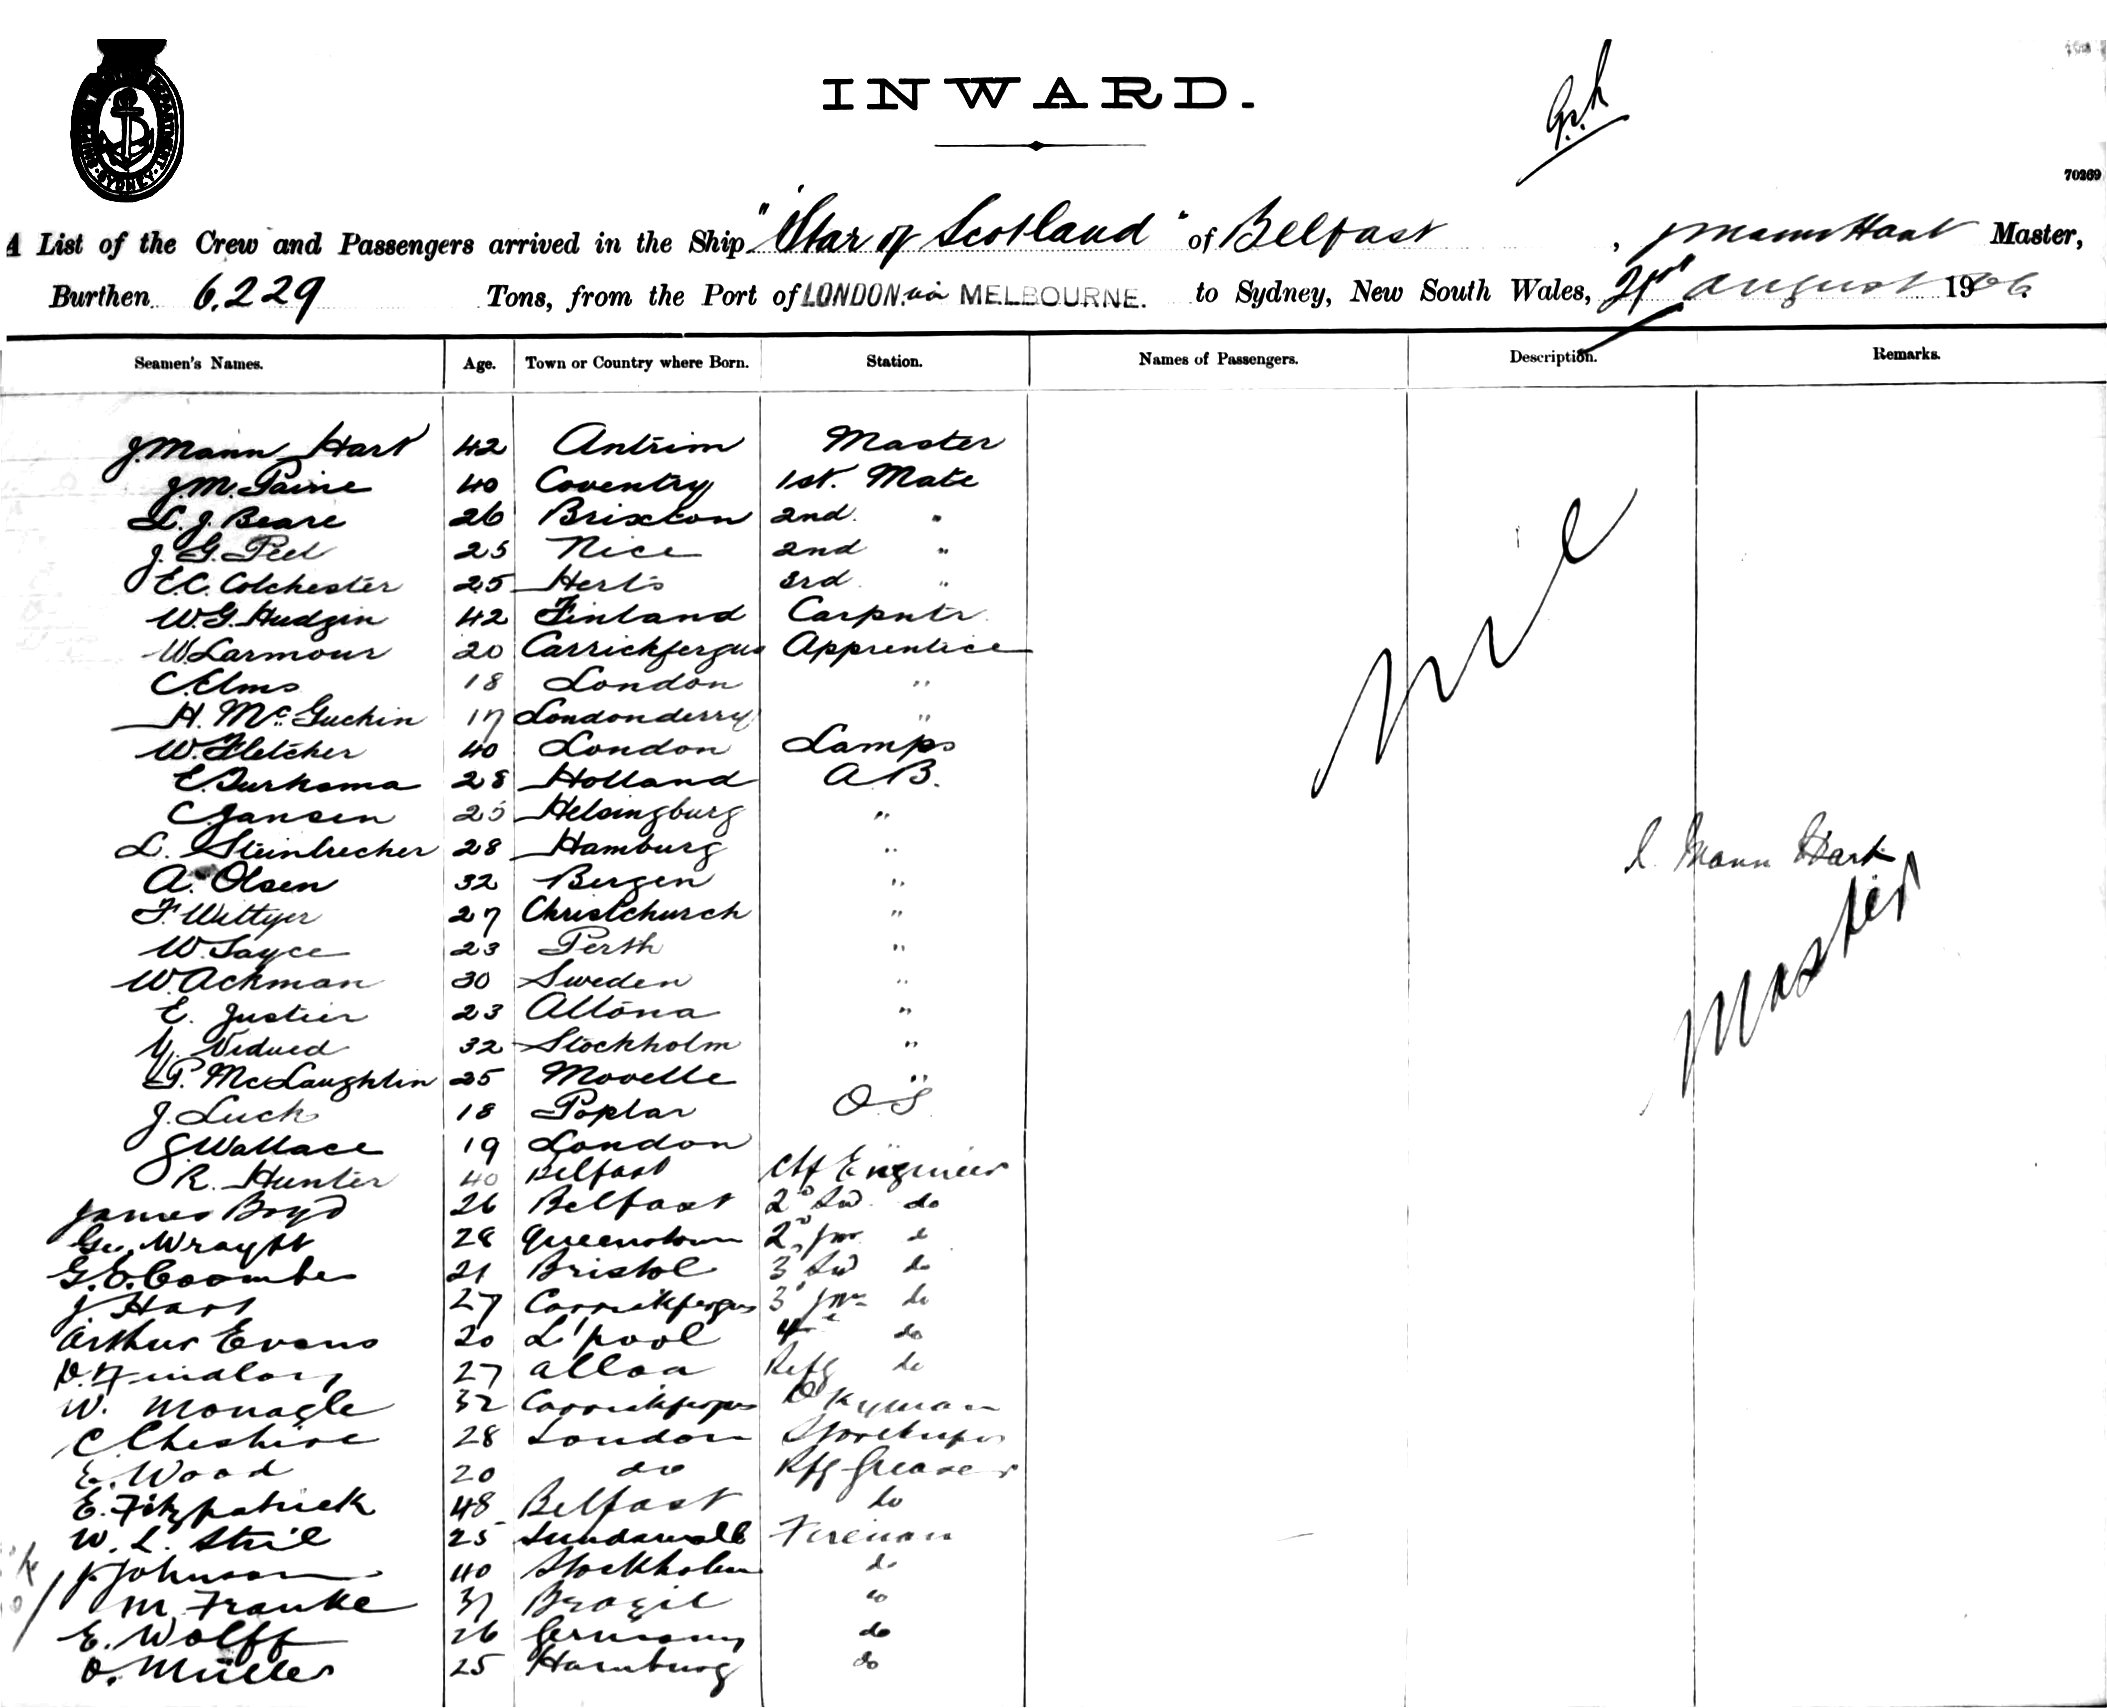 INWARD.
70269
A List of the Crew and Passengers arrived in the Ship "Star of Scotland" of Belfast, J Mann Hart Master,
Burthen 6,229 Tons, from the Port of LONDON via MELBOURNE. to Sydney, New South Wales, 21st August 1906
Seamen's Names. Age. Town or Country where Born. Station. Names of Passengers. Description. Remarks.
J. Mann Hart 42 Antrim Master
J.M. Paine 40 Coventry 1st. Mate
L. J. Beare 26 Brixton 2nd. "
J. G. Peel 25 Nice 2nd "
E.C. Colchester 25 Herts 3rd "
W.G. Hudgin 42 Finland Carpntr
W. Larmour 20 Carrickfergus Apprentice
C. Elms 18 London "
H. McGuckin 17 Londonderry "
W. Fletcher 40 London Lamps
E. Turksma 28 Holland A B.
C. Jansen 25 Helsingburg "
L. Steinbrecher 28 Hamburg "
A. Olsen 32 Bergen "
F. Wittyer 27 Christchurch "
W. Sayce 23 Perth "
W. Ackman 30 Sweden "
E. Justier 23 Altona "
Y. Vidued 32 Stockholm "
P. McLaughlin 25 Moville "
J. Luck 18 Poplar O S
G. Wallace 19 London "
R. Hunter 40 Belfast Chf Engineer
James Boyd 26 Belfast 2d Sr do
Geo. Wrayft 28 Queenstown 2d Jnr do
G. E. Coombes 21 Bristol 3 Sr do
J Hart 27 Carrickfergus 3 Jnr do
Arthur Evans 20 L'pool 4th do
D. Findlay 27 Alloa Refg do
W. Monagle 32 Carrickfergus Dkyman
C Cheshire 28 London Storekeeper
E. Wood 20 do Rfg Greaser
E. Fitzpatrick 48 Belfast do
W. L. Stril 25 Sundswall Fireman
J. Johnson 40 Stockholm do
M. Franke 37 Brazil do
E. Wolff 26 Germany do
O. Müller 25 Hamburg do
nil
J. Mann Hart
Master